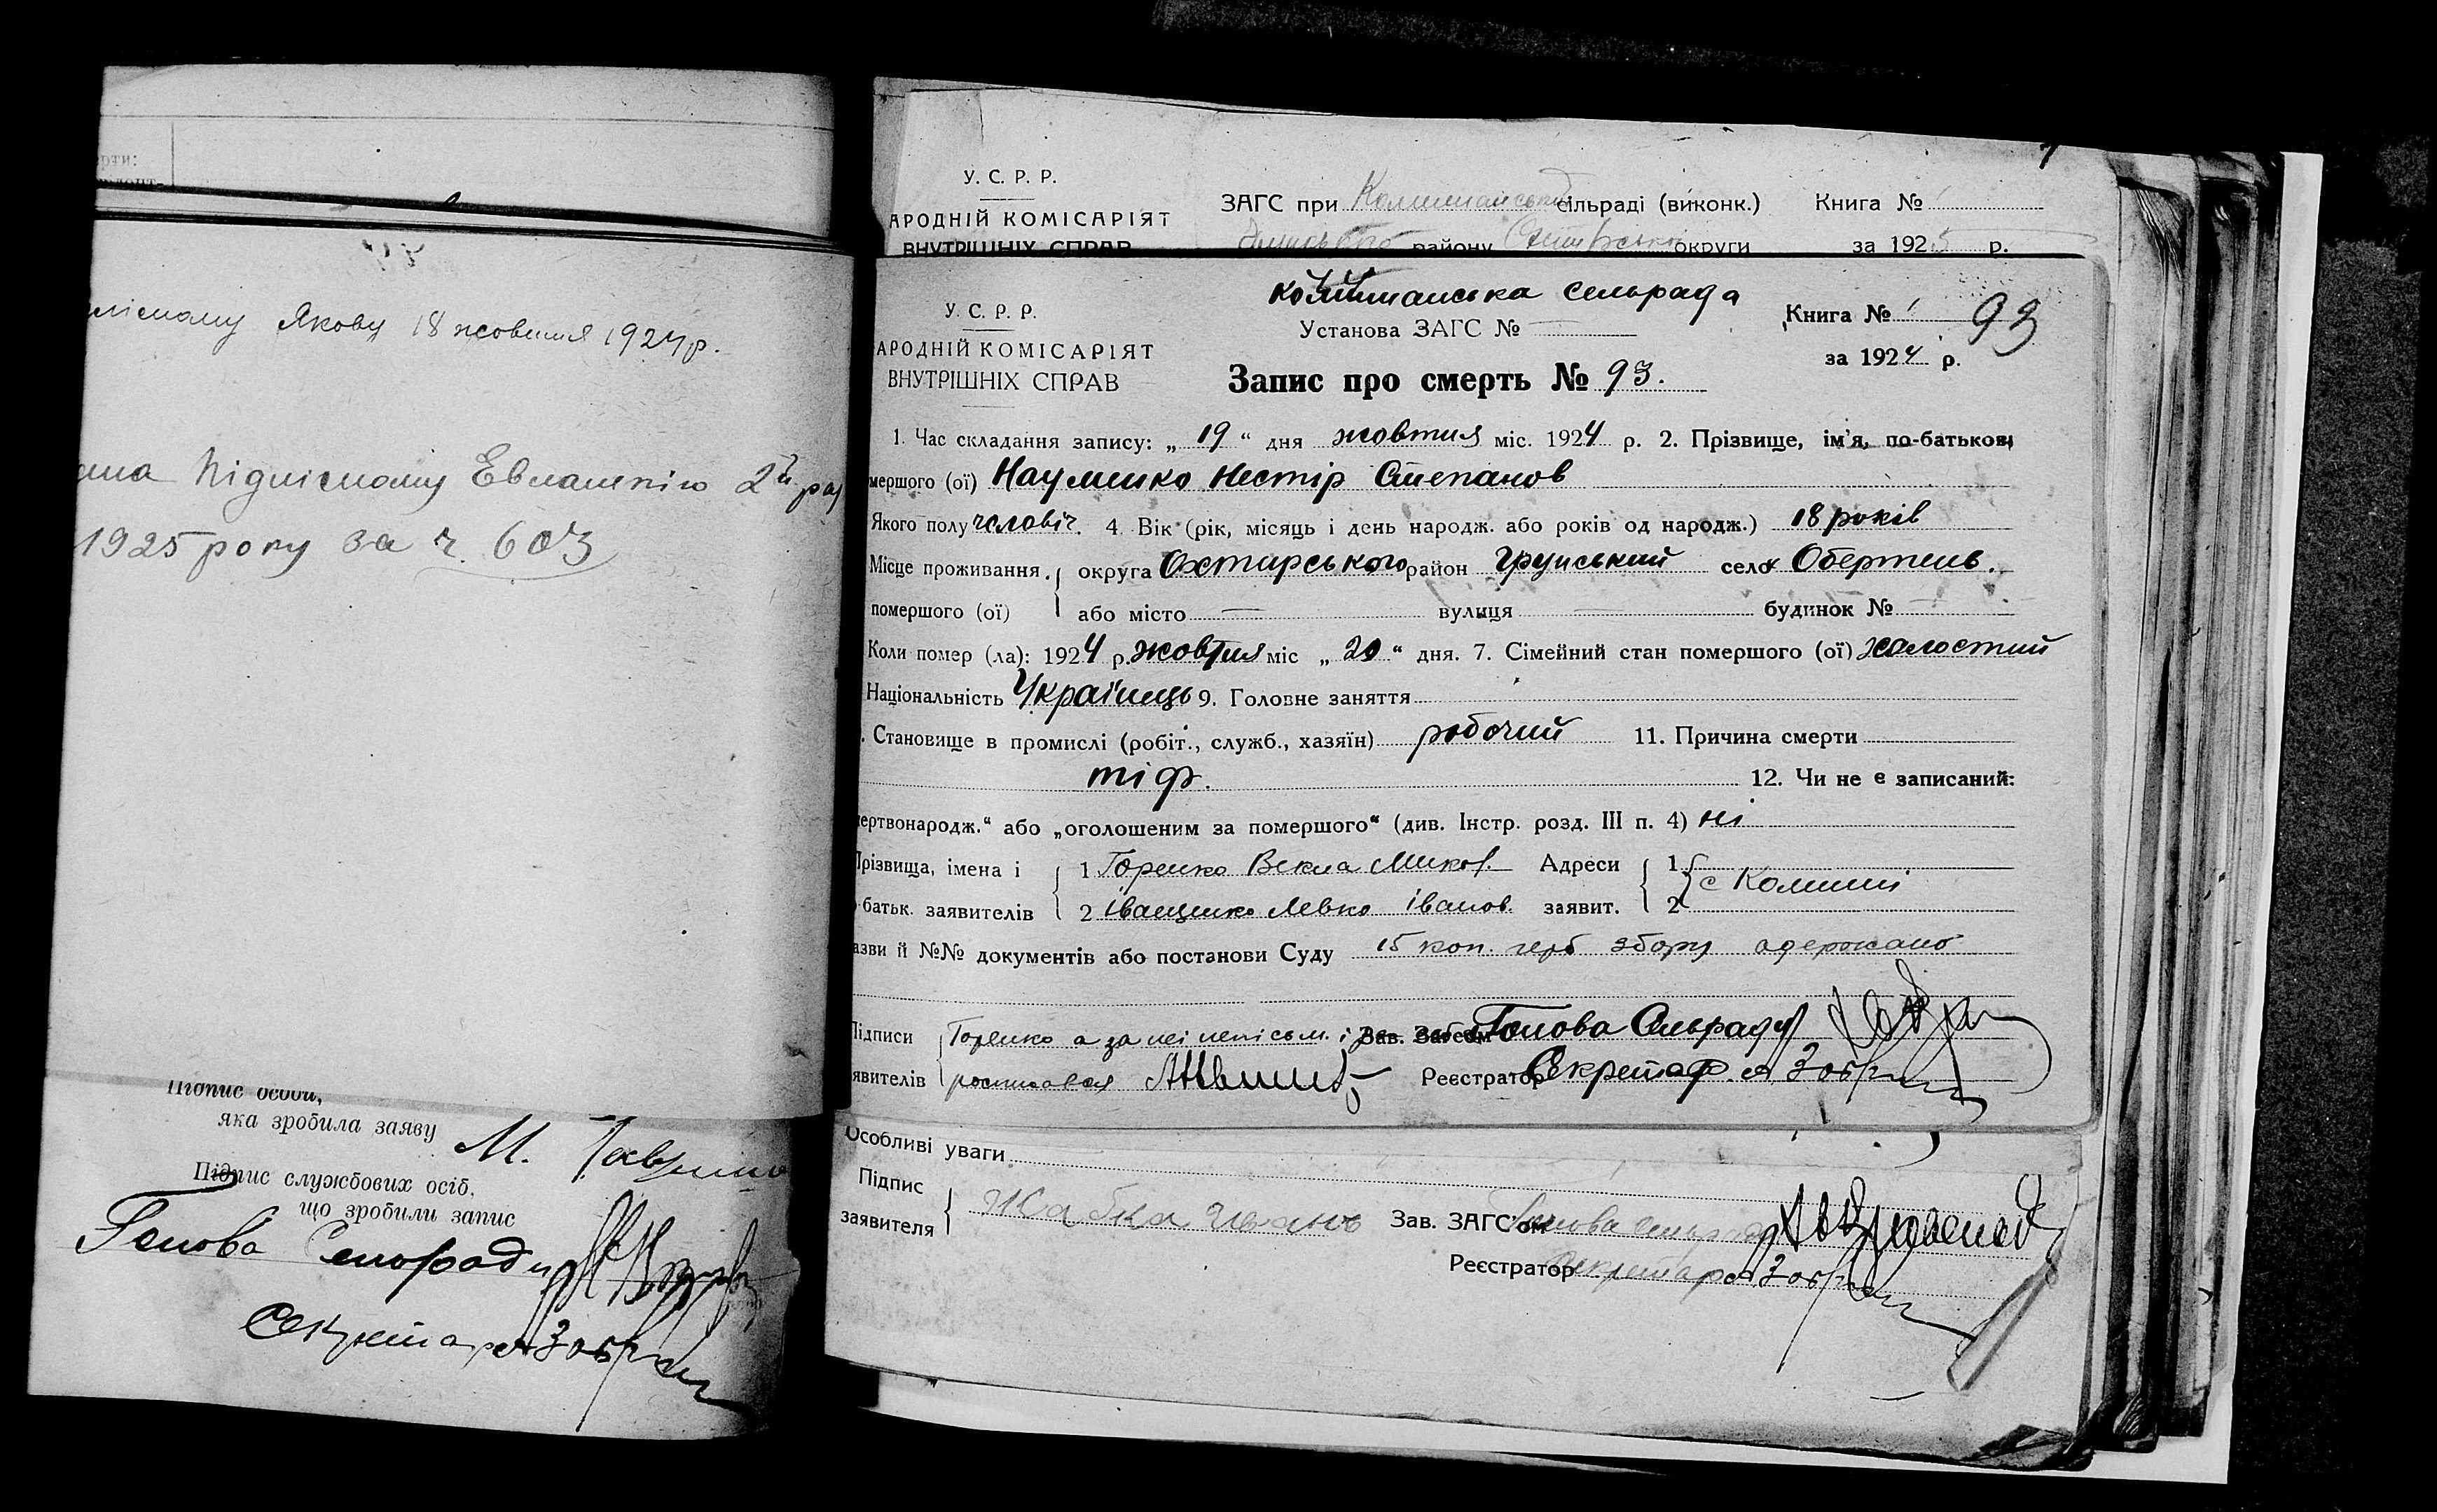 оти:
лісному Якову 18 жовтня 1924 р.
Підлісному Евлампію
1925 року за ч. 603
Підпис особи,
яка зробила заяву М.
Підпис службових осіб,
що зробили запис
Голова Сельради
Секретар
У. С. Р. Р.
АРОДНІЙ КОМІСАРІЯТ
ВНУТРІШНІХ СПРАВ
ЗАГС при сільраді (виконк.) Книга № 1
району округи за 1925 р.
У. С. Р. Р.
АРОДНІЙ КОМІСАРІЯТ
ВНУТРІШНІХ СПРАВ
сельрада
Установа ЗАГС №
Книга № 1 93
за 1924 р.
Запис про смерть № 93.
1. Час складання запису: „ 19 “ дня жовтня міс. 1924 р. 2. Прізвище, ім'я, по-батькові
мершого (ої) Науменко Нестір Степанов
Якого полу чоловіч. 4. Вік (рік, місяць і день народж. або років од народж.) 18 років
Місце проживання округа Охтирського район Грунський село Обертень.
помершого (ої) або місто вулиця будинок №
Коли помер (ла): 1924 р. жовтня міс „ 20 “ дня. 7. Сімейний стан помершого (ої) холостий
Національність Українець 9. Головне заняття
. Становище в промислі (робіт., служб., хазяїн) робочий 11. Причина смерти
тіф. 12. Чи не є записаний:
ертвонародж.“ або „оголошеним за помершого“ (див. Інстр. розд. III п. 4) ні
Прізвища, імена і 1 Горенко Векла Адреси 1
с Комиші
-батьк. заявителів 2 Іващенко Левко Іванов. заявит. 2
азви й №№ документів або постанови Суду 15 коп. герб збору одержано
Підписи Горенко а за неї непісьм. і Зав. Загсом Голова Сльради
явителів росписався Реєстратор Секретар
Особливі уваги
Підпис
заявителя Жабка Зав. ЗАГСом Голова
Реєстратор Секретар